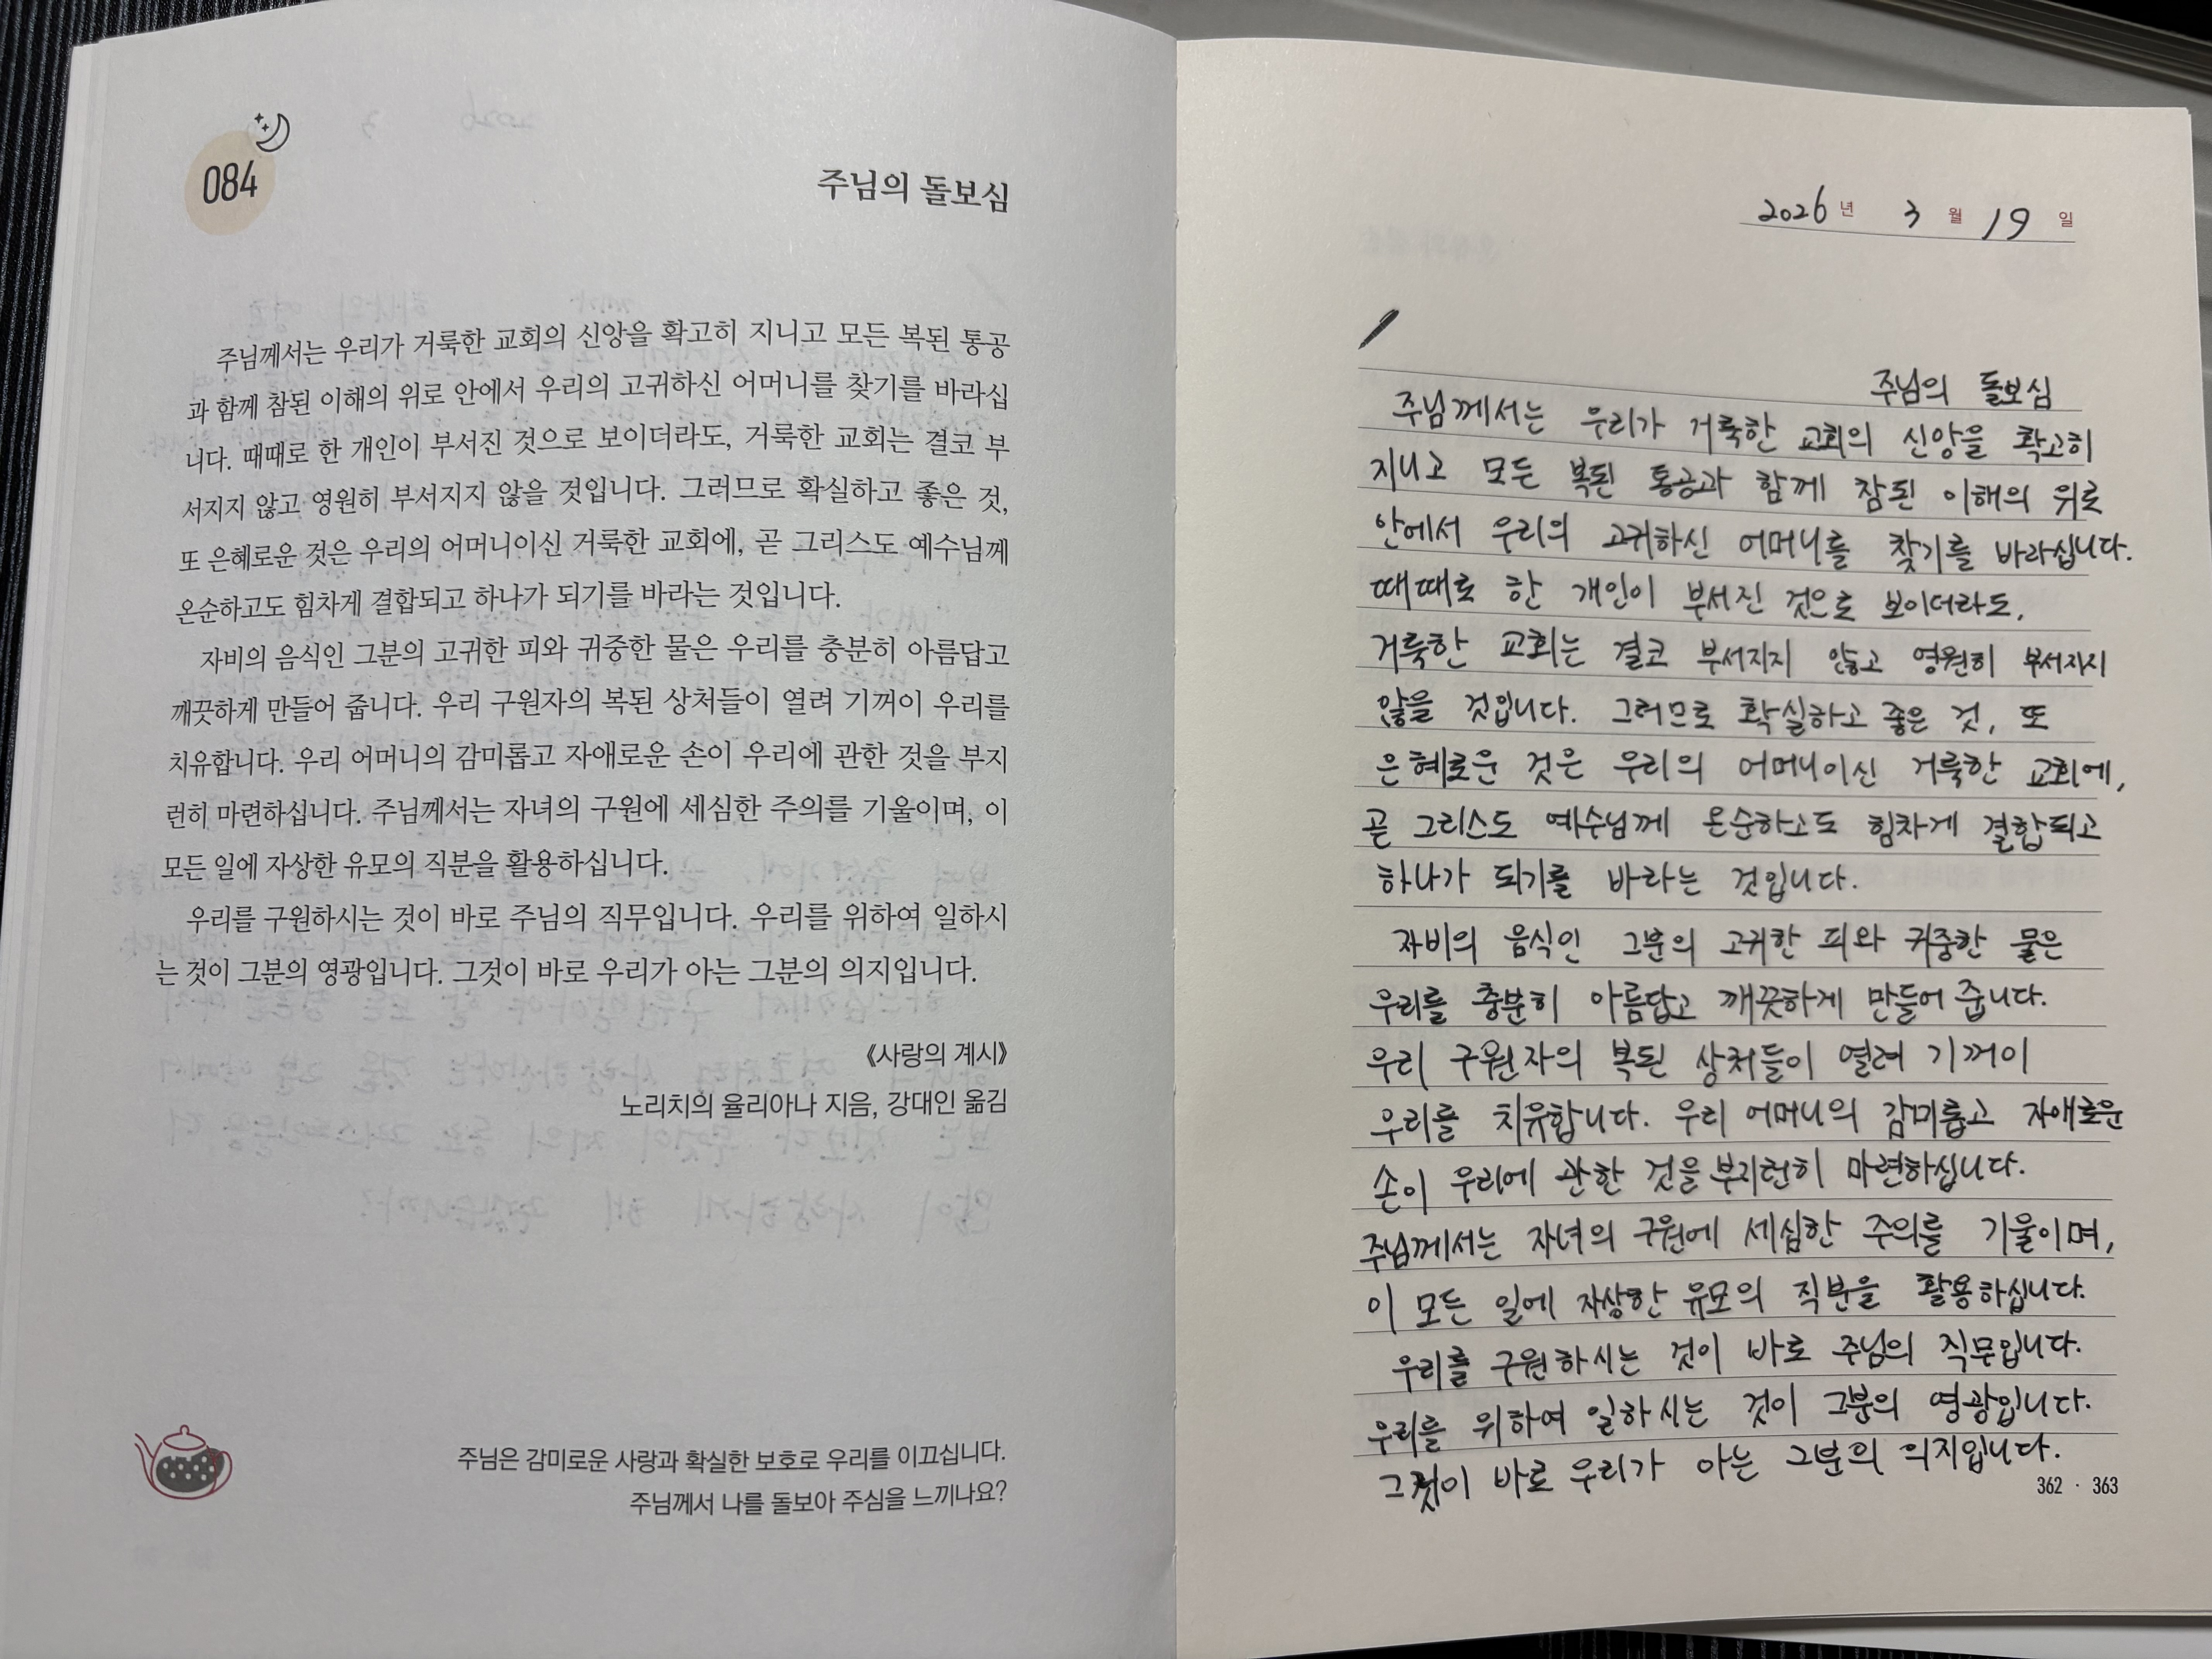 084
주님의 돌보심
주님께서는 우리가 거룩한 교회의 신앙을 확고히 지니고 모든 복된 통공
과 함께 참된 이해의 위로 안에서 우리의 고귀하신 어머니를 찾기를 바라십
니다. 때때로 한 개인이 부서진 것으로 보이더라도, 거룩한 교회는 결코 부
서지지 않고 영원히 부서지지 않을 것입니다. 그러므로 확실하고 좋은 것,
또 은혜로운 것은 우리의 어머니이신 거룩한 교회에, 곧 그리스도 예수님께
온순하고도 힘차게 결합되고 하나가 되기를 바라는 것입니다.
자비의 음식인 그분의 고귀한 피와 귀중한 물은 우리를 충분히 아름답고
깨끗하게 만들어 줍니다. 우리 구원자의 복된 상처들이 열려 기꺼이 우리를
치유합니다. 우리 어머니의 감미롭고 자애로운 손이 우리에 관한 것을 부지
런히 마련하십니다. 주님께서는 자녀의 구원에 세심한 주의를 기울이며, 이
모든 일에 자상한 유모의 직분을 활용하십니다.
우리를 구원하시는 것이 바로 주님의 직무입니다. 우리를 위하여 일하시
는 것이 그분의 영광입니다. 그것이 바로 우리가 아는 그분의 의지입니다.
《사랑의 계시》
노리치의 율리아나 지음, 강대인 옮김
주님은 감미로운 사랑과 확실한 보호로 우리를 이끄십니다.
주님께서 나를 돌보아 주심을 느끼나요?
2026년 3월 19일
주님의 돌보심
주님께서는 우리가 거룩한 교회의 신앙을 확고히
지니고 모든 복된 통공과 함께 참된 이해의 위로
안에서 우리의 고귀하신 어머니를 찾기를 바라십니다.
때때로 한 개인이 부서진 것으로 보이더라도,
거룩한 교회는 결코 부서지지 않고 영원히 부서지지
않을 것입니다. 그러므로 확실하고 좋은 것, 또
은혜로운 것은 우리의 어머니이신 거룩한 교회에,
곧 그리스도 예수님께 온순하고도 힘차게 결합되고
하나가 되기를 바라는 것입니다.
자비의 음식인 그분의 고귀한 피와 귀중한 물은
우리를 충분히 아름답고 깨끗하게 만들어 줍니다.
우리 구원자의 복된 상처들이 열려 기꺼이
우리를 치유합니다. 우리 어머니의 감미롭고 자애로운
손이 우리에 관한 것을 부지런히 마련하십니다.
주님께서는 자녀의 구원에 세심한 주의를 기울이며,
이 모든 일에 자상한 유모의 직분을 활용하십니다.
우리를 구원하시는 것이 바로 주님의 직무입니다.
우리를 위하여 일하시는 것이 그분의 영광입니다.
그것이 바로 우리가 아는 그분의 의지입니다.
362 · 363